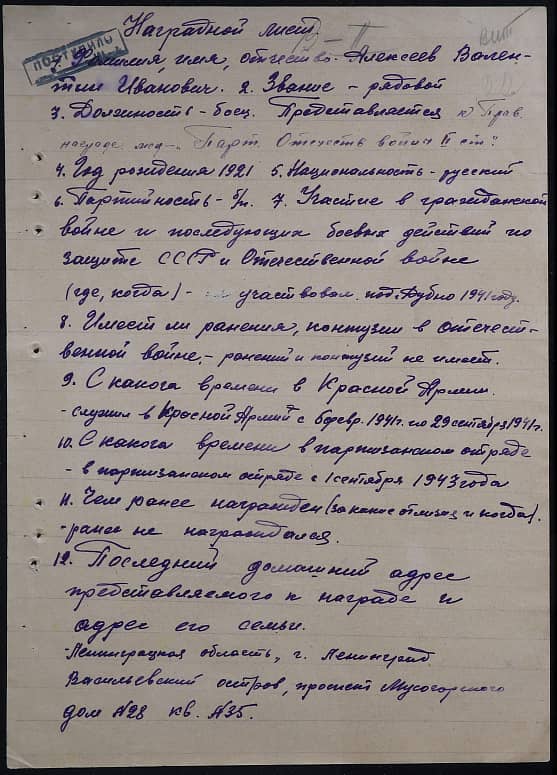 Наградной лист
ВИТ
ПОСТУПИЛО
1. Фамилия, имя, отчество – Алексеев Вален-
тин Иванович. 2. Звание – рядовой
3. Должность – боец. Представляется к Прав.
награде мед – "Парт. Отечеств войны II ст."
4. Год рождения 1921 5. Национальность – русский
6. Партийность – б/п. 7. Участие в гражданской
войне и последующих боевых действий по
защите СССР и Отечественной войне
(где, когда) – участвовал под Дубно 1941 году.
8. Имеет ли ранения, контузии в отечест-
венной войне, – ранений и контузий не имеет.
9. С какога времени в Красной Армии
– служил в Красной Армий с 6 февр. 1941г. по 29 сентября 1941г.
10. С какога времени в партизанском отряде
– в партизанском отряде с 1 сентября 1943 года
11. Чем ранее награжден (за какие отличия и когда).
– ранее не награждался.
12. Последний домашний адрес
представляемого к награде и
адрес его семьи.
– Ленинградская область, г. Ленинград
Васильевский остров, проспект Мусоргского
дом №28 кв. №35.